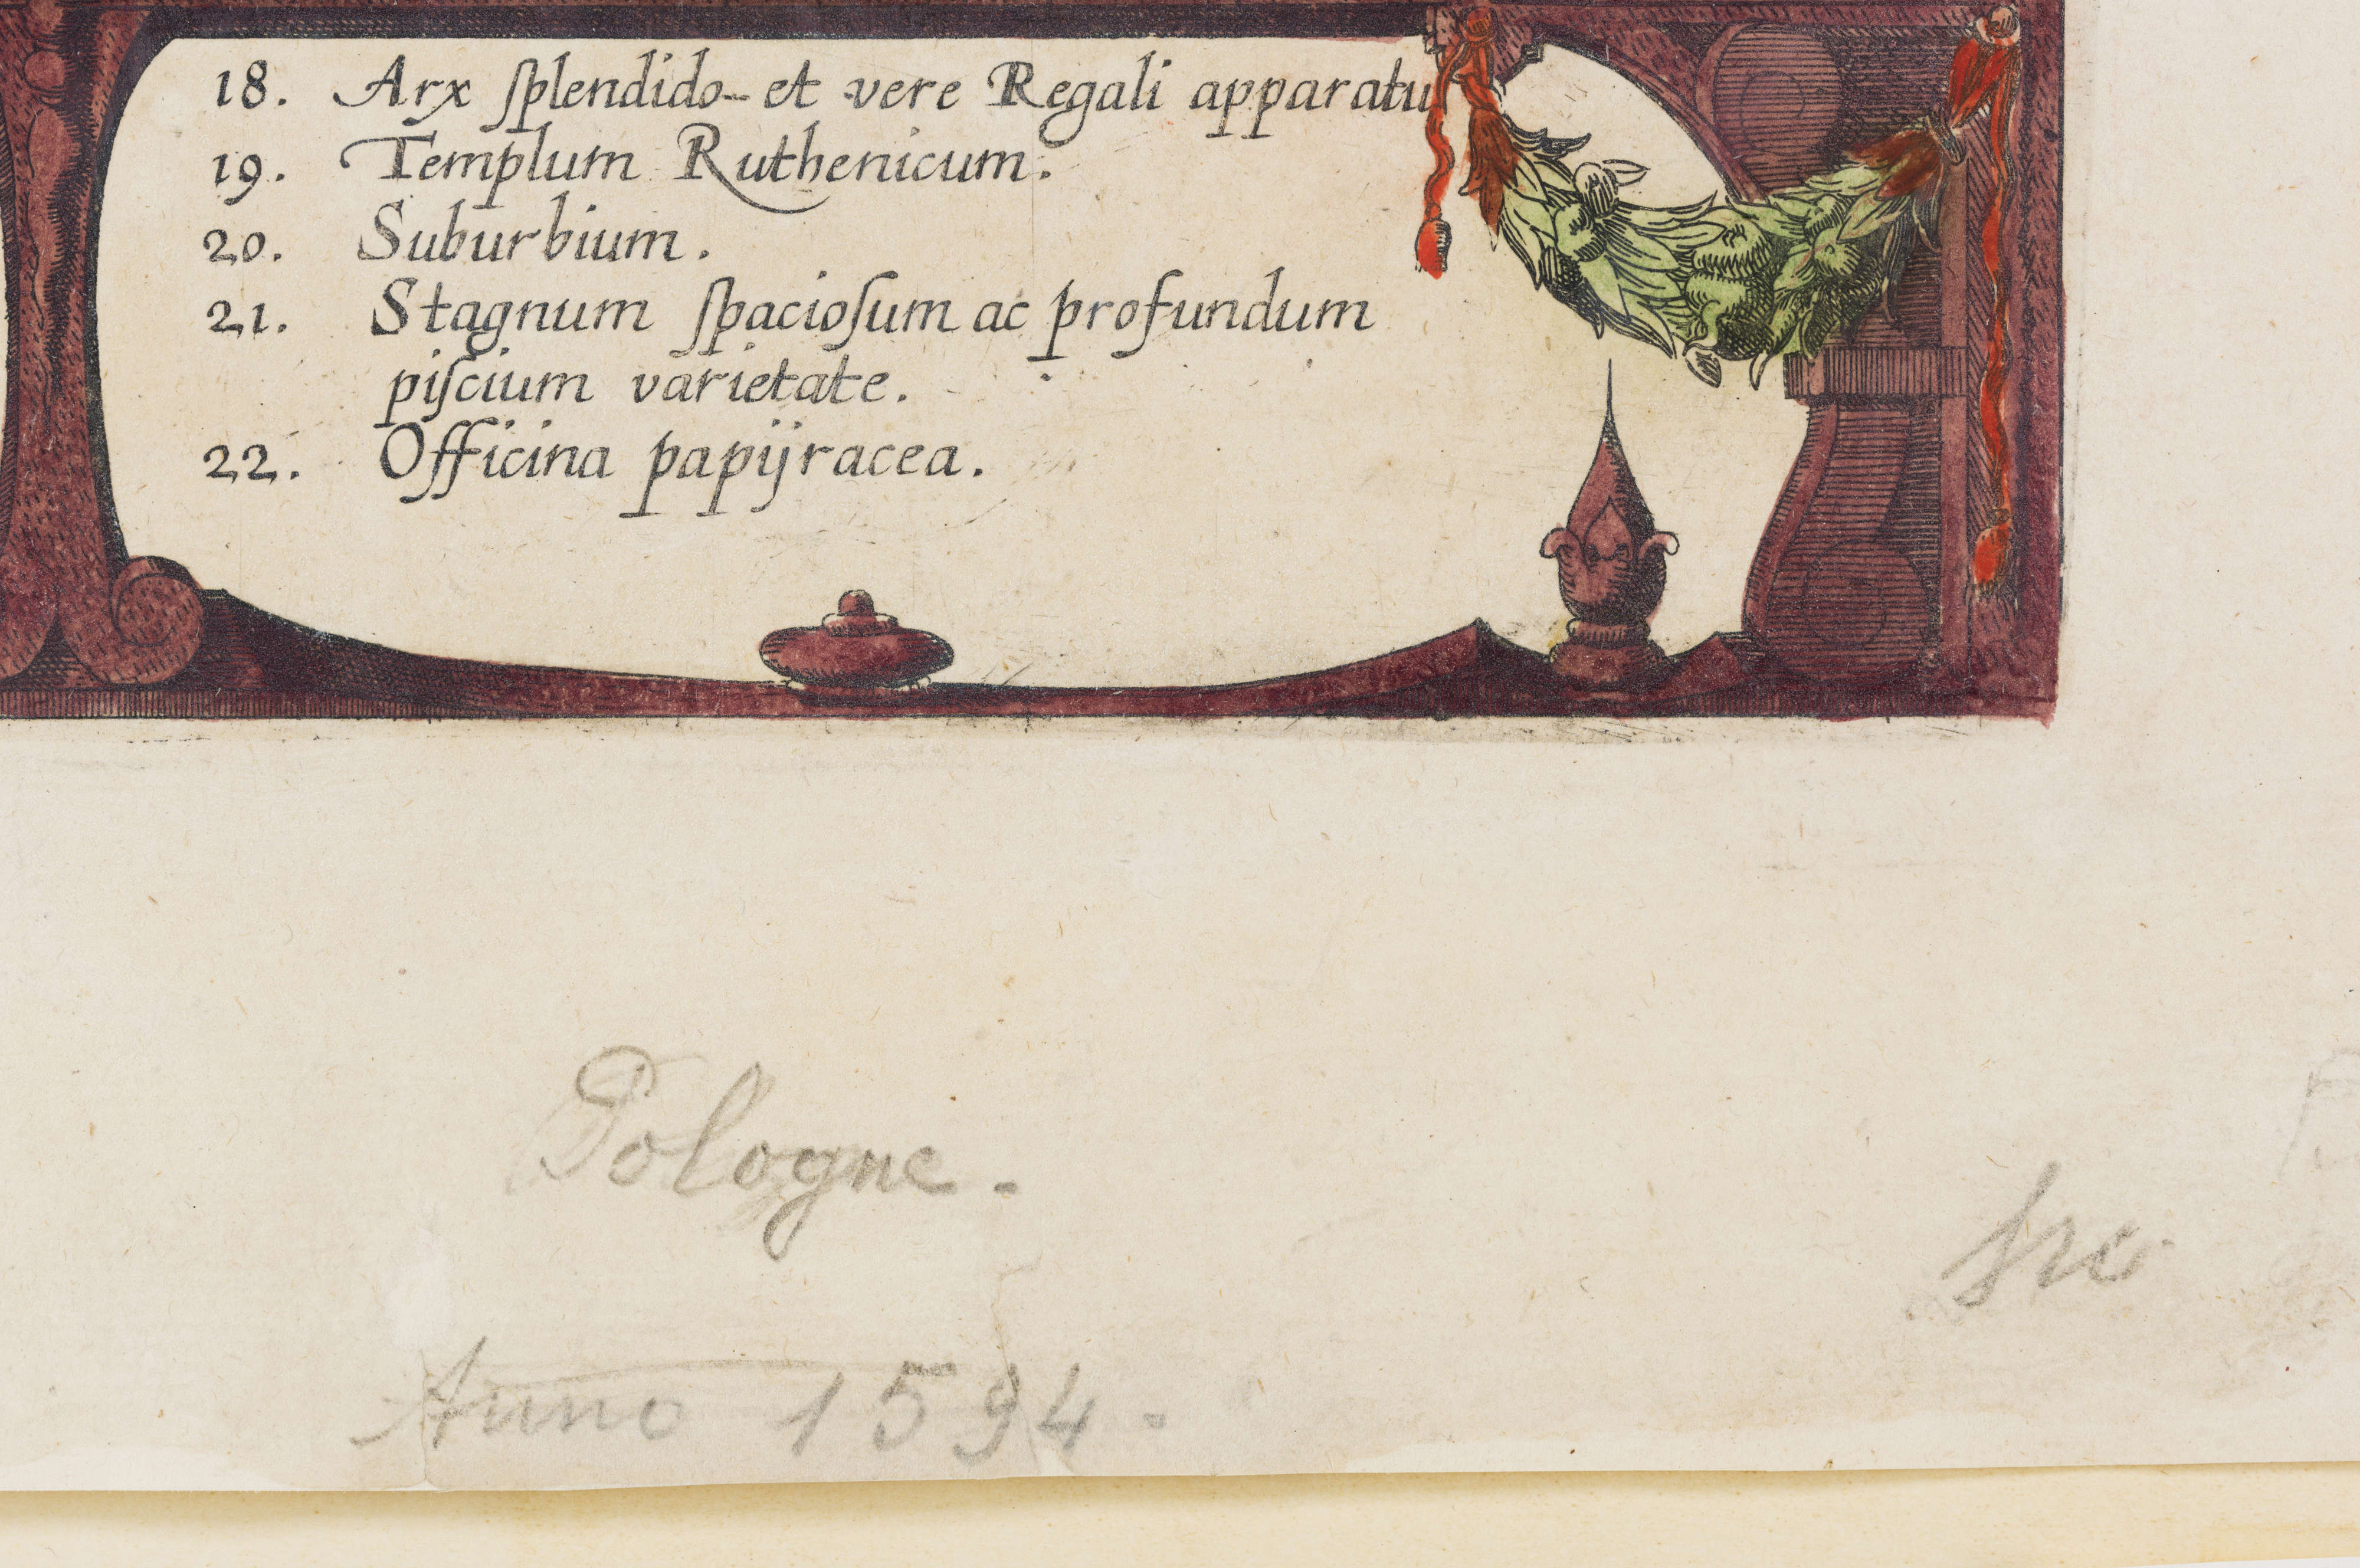 18. Arx ſplendido et vere Regali apparatu
19. Templum Ruthenicum.
20. Suburbium.
21. Stagnum ſpacioſum ac profundum
piſcium varietate.
22. Officina papijracea.
Pologne.
Anno 1594.